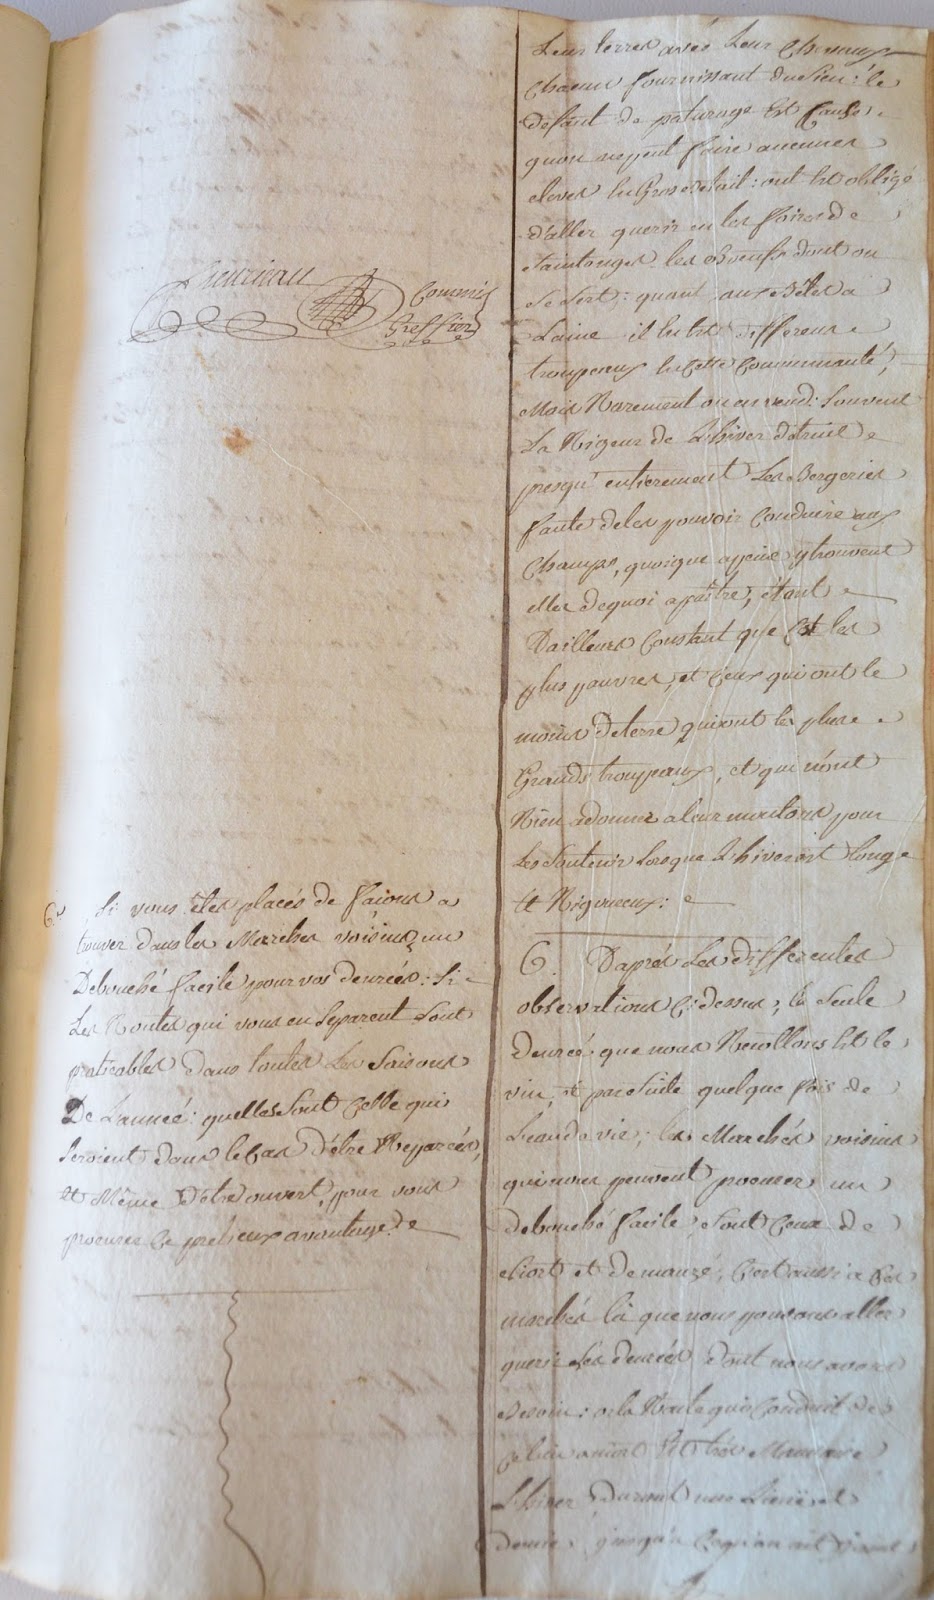 Commis
Greffier
6.e Si vous êtes placés de façons a
trouver dans les Marchés voisins, un
Debouché facile pour vos denrées: Si
Les Routes qui vous en Separent Sont
praticables dans toutes Les Saisons
De L'année: quelles Sont Celle qui
Seroient dans le Cas d'être Reparées,
et Même D'être ouvert, pour vous
procurer Ce pretieux avantage.
Leur terres avec Leur Chevaux
Chacun fournissant du Sien: le
defaut de paturage Est Cause
quon ne peut faire aucunes
eleves En Gros betail: ont Est obligé
D'aller querir en les foires de
Saintonges les Boeufs dont on
Se Sert: quant aux Bêtes a
Laine il Est differens
troupeaux En Cette Communauté,
Mais Rarement on en vend: Souvent
La Rigeur de L'hiver detruit
presqu'entierement Les Bergeries
faute de les pouvoir Conduire aux
Champs, quoique a peine y trouvent
elles de quoi a paître, étant
D'ailleurs Constant que C'Est les
plus pauvres, et Ceux qui ont le
moins De terre qui ont les plus
Grands troupeaux, et qui n'ont
Rien a donner a leur moutons pour
Les Soutenir Lorsque L'hiver est Long
Et Rigoureux:
6. D'aprés Les differentes
observations Ci dessus, la Seule
denrée que nous Recollons Est le
vin, et par Suite quelque fois de
L'eau de vie; les Marchés voisins
qui nous peuvent procurer un
debouché facile, Sont Ceux de
Niort et de mauzé, C'est aussi a Ces
marchés là que nous pouvons aller
querir Les denrées Dont nous avons
Besoin: or la Route qui Conduit de
Ce lieu a niort Est trés Mauvaise
L'hiver Durant une Lieuë et
demie jusqu'a